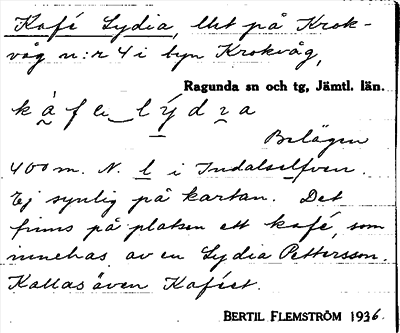 Kafé Lydia, lht på Krok-
våg n:r 4 i byn Krokvåg,
Ragunda sn och tg, Jämtl. län.
Belägen
400 m. N. l i Indalselfven.
Ej synlig på kartan. Det
finns på platsen ett kafé, som
innehas av en Lydia Pettersson.
Kallas även Kaféet.
BERTIL FLEMSTRÖM 1936